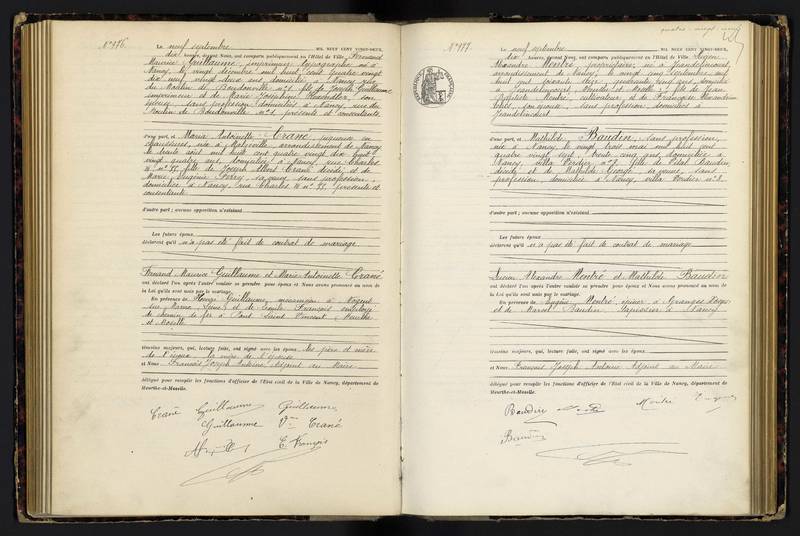 N° 176.
Le neuf septembre MIL NEUF CENT VINGT-DEUX,
dix heures, devant Nous, ont comparu publiquement en l'Hôtel de Ville, Fernand
Maurice Guillaume, imprimeur typographe né à
Nancy, le vingt décembre mil huit cent quatre vingt
dix neuf, vingt deux ans domicilié à Nancy rue
du Moulin de Boudonville n° 1 fils de Joseph Guillaume
imprimeur et de Marie Joséphine son
épouse sans profession domiciliés à Nancy, rue du
Moulin de Boudonville n° 1, présents et consentants
d'une part, et Maria Antoinette Crané, piqueuse en
chaussures, née à Malzéville, arrondissement de Nancy
le trente août mil huit cent quatre vingt dix huit
vingt quatre ans, domiciliée à Nancy, rue Charles
n° 55, fille de Joseph Albert Crané décédé, et de
Marie Eugénie Ferry, sa veuve, sans profession,
domiciliée à Nancy, rue Charles n° 55, présente et
consentante
d'autre part ; aucune opposition n'existant
Les futurs époux
déclarent qu'il n'a pas été fait de contrat de mariage
Fernand Maurice Guillaume et Maria Antoinette Crané
ont déclaré l'un après l'autre vouloir se prendre pour époux et Nous avons prononcé au nom de
la Loi qu'ils sont unis par le mariage.
En présence de Guillaume, mécanicien à Nogent
sur Marne Seine, et de Emile François employé
de chemin de fer à Pont Saint Vincent, Meurthe
et Moselle
témoins majeurs, qui, lecture faite, ont signé avec les époux, les père et mère
de l'époux, la mère de l'épouse
et Nous François Joseph Antoine, Adjoint au Maire
délégué pour remplir les fonctions d'officier de l'État civil de la Ville de Nancy, département de
Meurthe-et-Moselle.
Crané Guillaume Guillaume
Guillaume Vve Crané
E. François
N° 177.
Le neuf septembre MIL NEUF CENT VINGT-DEUX,
dix heures, devant Nous, ont comparu publiquement en l'Hôtel de Ville, Lucien
Alexandre Montré, propriétaire, né à Jeandelincourt,
arrondissement de Nancy, le vingt cinq septembre mil
huit cent quarante cinq ans, domicilié
à Jeandelincourt, Meurthe et Moselle, fils de Jean
Baptiste Montré, cultivateur, et de Françoise
son épouse, sans profession, domiciliés à
Jeandelincourt
d'une part, et Mathilde Baudin, sans profession,
née à Nancy, le vingt trois mai mil huit cent
quatre vingt sept, trente cinq ans, domiciliée à
Nancy, villa n° 8, fille de Baudin,
décédé, et de Mathilde George, sa veuve, sans
profession, domiciliée à Nancy, villa n° 8.
d'autre part ; aucune opposition n'existant
Les futurs époux
déclarent qu'il n'a pas été fait de contrat de mariage
Lucien Alexandre Montré et Mathilde Baudin
ont déclaré l'un après l'autre vouloir se prendre pour époux et Nous avons prononcé au nom de
la Loi qu'ils sont unis par le mariage.
En présence de Eugène Montré, épicier à Granges Vosges
et de Marcel Baudin, tapissier à Nancy
témoins majeurs, qui, lecture faite, ont signé avec les époux
et Nous François Joseph Antoine Adjoint au Maire
délégué pour remplir les fonctions d'officier de l'État civil de la Ville de Nancy, département de
Meurthe-et-Moselle.
Baudin Montré
Baudin